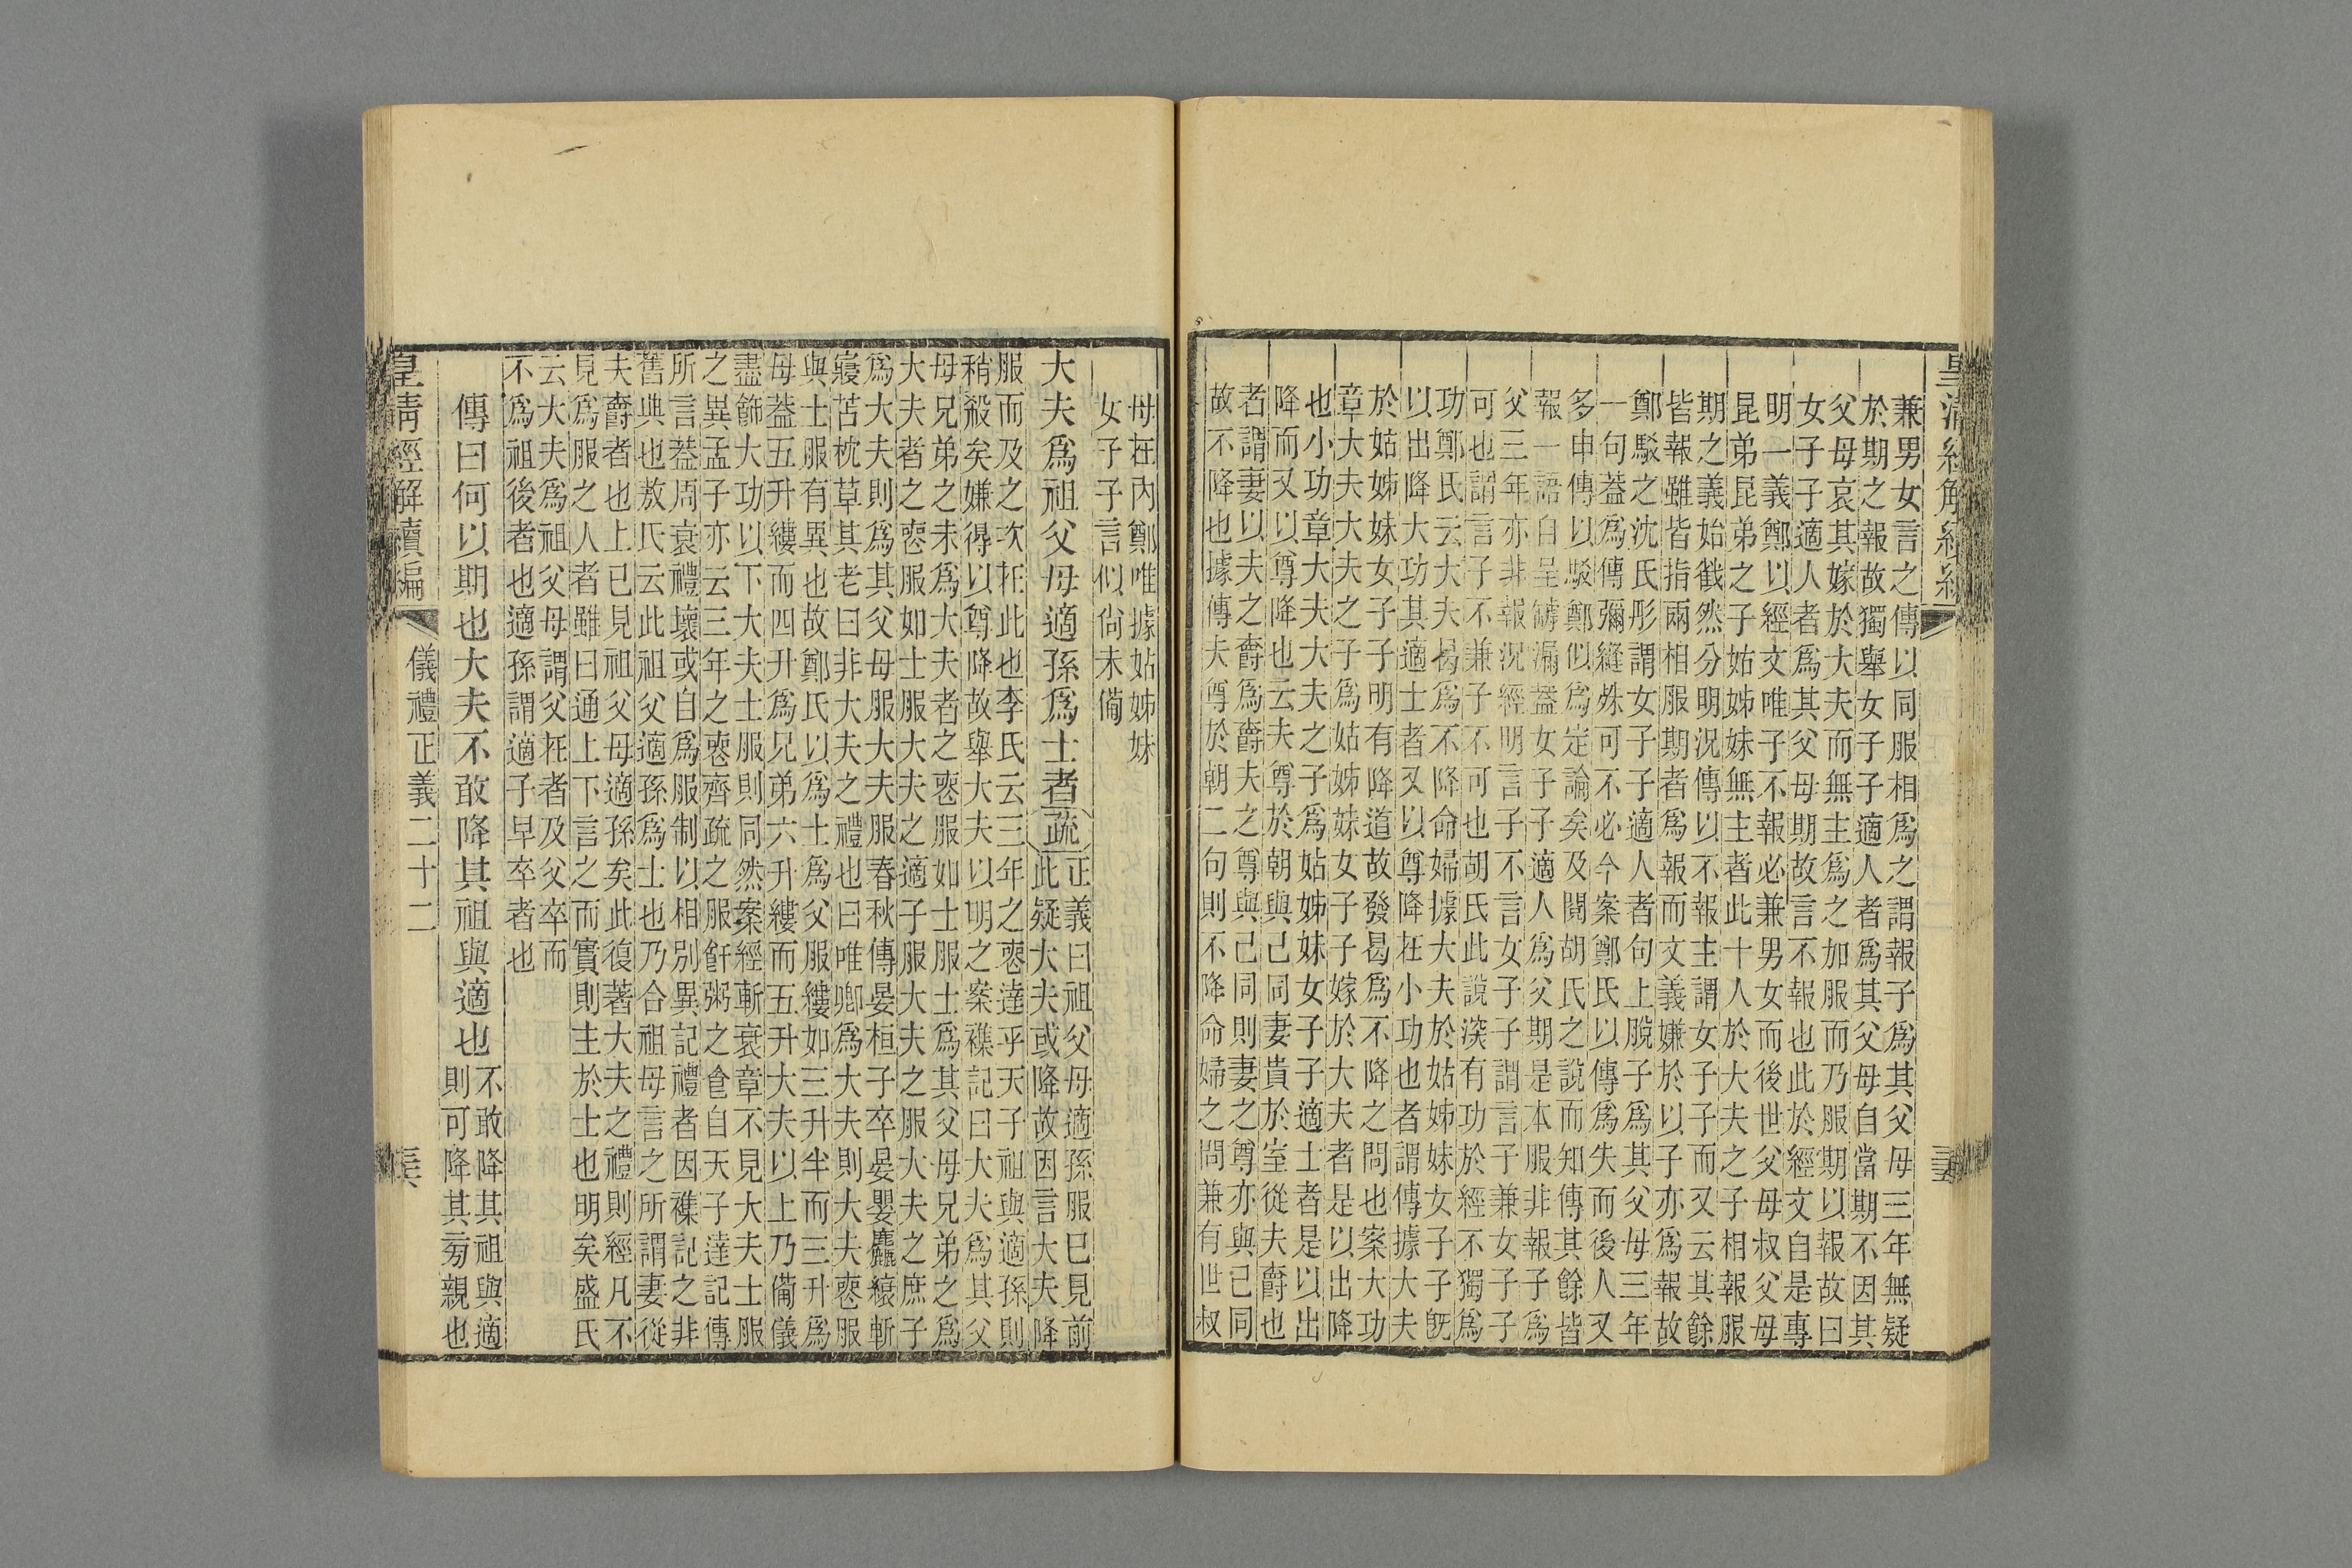 皇清經解續編
兼男女言之傳以同服相爲之謂報子爲其父母三年無疑
於期之報故獨舉女子子適人者爲其父母自當期不因其
父母哀其嫁於大夫而無主爲之加服而乃服期以報故曰
女子子適人者爲其父母期故言不報也此於經文自是專
明一義鄭以經文唯子不報必兼男女而後世父母叔父母
昆弟昆弟之子姑姊妹無主者此十人於大夫之子相報服
期之義始截然分明況傳以不報主謂女子子而又云其餘
皆報雖皆指兩相服期者爲報而文義嫌於以子亦爲報故
鄭駁之沈氏彤謂女子子適人者句上脫子爲其父母三年
一句蓋爲傳彌縫殊可不必今案鄭氏以傳爲失而後人又
多申傳以駁鄭似爲定論矣及閱胡氏之說而知傳其餘皆
報一語自呈罅漏蓋女子子適人爲父期是本服非報子爲
父三年亦非報況經明言子不言女子子謂言子兼女子子
可也謂言子不兼子不可也胡氏此說深有功於經不獨爲
功鄭氏云大夫曷爲不降命婦據大夫於姑姊妹女子子旣
以出降大功其適士者又以尊降在小功也者謂傳據大夫
於姑姊妹女子子明有降道故發曷爲不降之問也案大功
章大夫大夫之子爲姑姊妹女子子嫁於大夫者是以出降
也小功章大夫大夫之子爲姑姊妹女子子適士者是以出
降而又以尊降也云夫尊於朝與己同妻貴於室從夫爵也
者謂妻以夫之爵爲爵夫之尊與己同則妻之尊亦與己同
故不降也據傳夫尊於朝二句則不降命婦之問兼有世叔
母在內鄭唯據姑姊妹
女子子言似尙未僃
大夫爲祖父母適孫爲士者疏正義曰祖父母適孫服已見前
此疑大夫或降故因言大夫降
服而及之次在此也李氏云三年之喪達乎天子祖與適孫則
稍殺矣嫌得以尊降故舉大夫以明之案襍記曰大夫爲其父
母兄弟之未爲大夫者之喪服如士服士爲其父母兄弟之爲
大夫者之喪服如士服大夫之適子服大夫之服大夫之庶子
爲大夫則爲其父母服大夫服春秋傳晏桓子卒晏嬰麤縗斬
寢苫枕草其老曰非大夫之禮也曰唯卿爲大夫則大夫喪服
與士服有異也故鄭氏以爲士爲父服縷如三升半而三升爲
母蓋五升縷而四升爲兄弟六升縷而五升大夫以上乃備儀
盡飾大功以下大夫士服則同然案經斬衰章不見大夫士服
之異孟子亦云三年之喪齊疏之服飦粥之食自天子達記傳
所言蓋周衰禮壞或自爲服制以相別異記禮者因襍記之非
舊典也敖氏云此祖父適孫爲士也乃合祖母言之所謂妻從
夫爵者也上已見祖父母適孫矣此復著大夫之禮則經凡不
見爲服之人者雖曰通上下言之而實則主於士也明矣盛氏
云大夫爲祖父母謂父在者及父卒而
不爲祖後者也適孫謂適子早卒者也
傳曰何以期也大夫不敢降其祖與適也不敢降其祖與適
則可降其旁親也
皇清經解續編
儀禮正義二十二